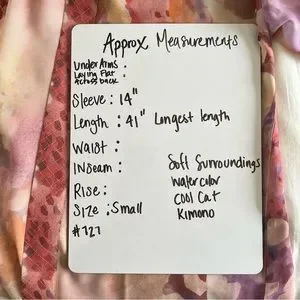 Approx Measurements
Under Arms :
Laying Flat :
Across back
Sleeve : 14"
Length : 41" Longest length
Waist :
Inseam :
Rise :
Size : Small
#727
Soft Surroundings
Watercolor
Cool Cat
Kimono